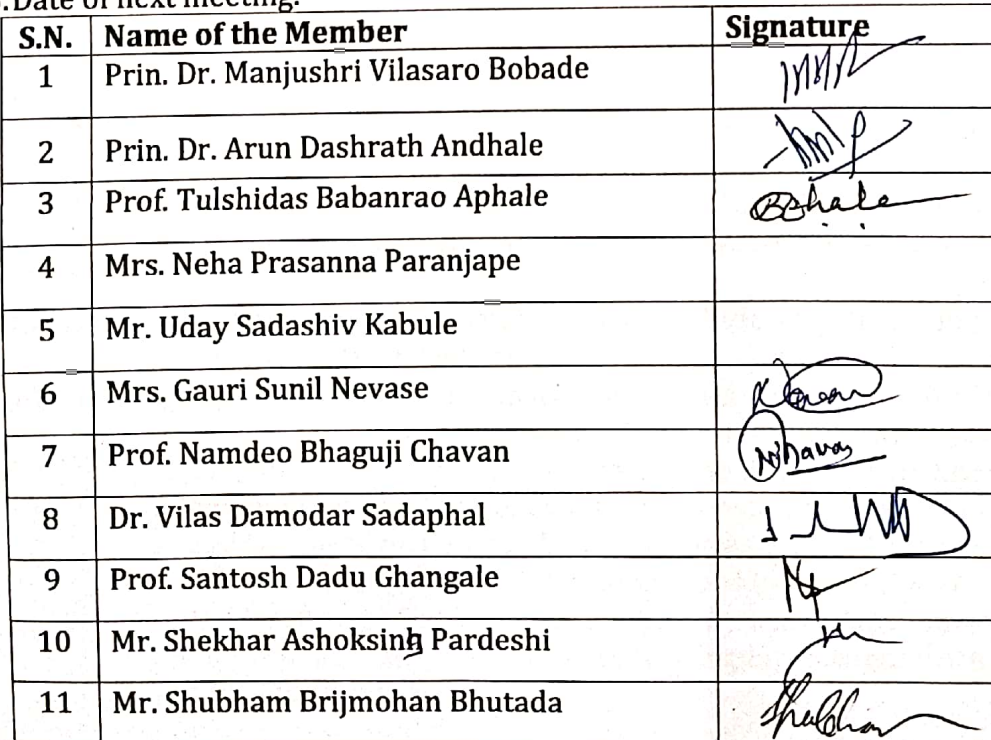 Date of next meeting.
S.N. Name of the Member Signature
1 Prin. Dr. Manjushri Vilasaro Bobade
2 Prin. Dr. Arun Dashrath Andhale
3 Prof. Tulshidas Babanrao Aphale
4 Mrs. Neha Prasanna Paranjape
5 Mr. Uday Sadashiv Kabule
6 Mrs. Gauri Sunil Nevase
7 Prof. Namdeo Bhaguji Chavan
8 Dr. Vilas Damodar Sadaphal
9 Prof. Santosh Dadu Ghangale
10 Mr. Shekhar Ashoksing Pardeshi
11 Mr. Shubham Brijmohan Bhutada